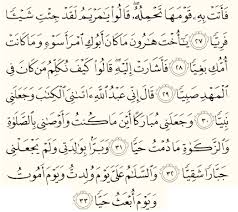 فَأَتَتْ بِهِۦ قَوْمَهَا تَحْمِلُهُۥ ۖ قَالُوا۟ يَـٰمَرْيَمُ لَقَدْ جِئْتِ شَيْـًٔا
فَرِيًّا ٢٧ يَـٰٓأُخْتَ هَـٰرُونَ مَا كَانَ أَبُوكِ ٱمْرَأَ سَوْءٍ وَمَا كَانَتْ
أُمُّكِ بَغِيًّا ٢٨ فَأَشَارَتْ إِلَيْهِ ۖ قَالُوا۟ كَيْفَ نُكَلِّمُ مَن كَانَ فِى
ٱلْمَهْدِ صَبِيًّا ٢٩ قَالَ إِنِّى عَبْدُ ٱللَّهِ ءَاتَىٰنِىَ ٱلْكِتَـٰبَ وَجَعَلَنِى
نَبِيًّا ٣٠ وَجَعَلَنِى مُبَارَكًا أَيْنَ مَا كُنتُ وَأَوْصَـٰنِى بِٱلصَّلَوٰةِ
وَٱلزَّكَوٰةِ مَا دُمْتُ حَيًّا ٣١ وَبَرًّۢا بِوَٰلِدَتِى وَلَمْ يَجْعَلْنِى
جَبَّارًا شَقِيًّا ٣٢ وَٱلسَّلَـٰمُ عَلَىَّ يَوْمَ وُلِدتُّ وَيَوْمَ أَمُوتُ
وَيَوْمَ أُبْعَثُ حَيًّا ٣٣